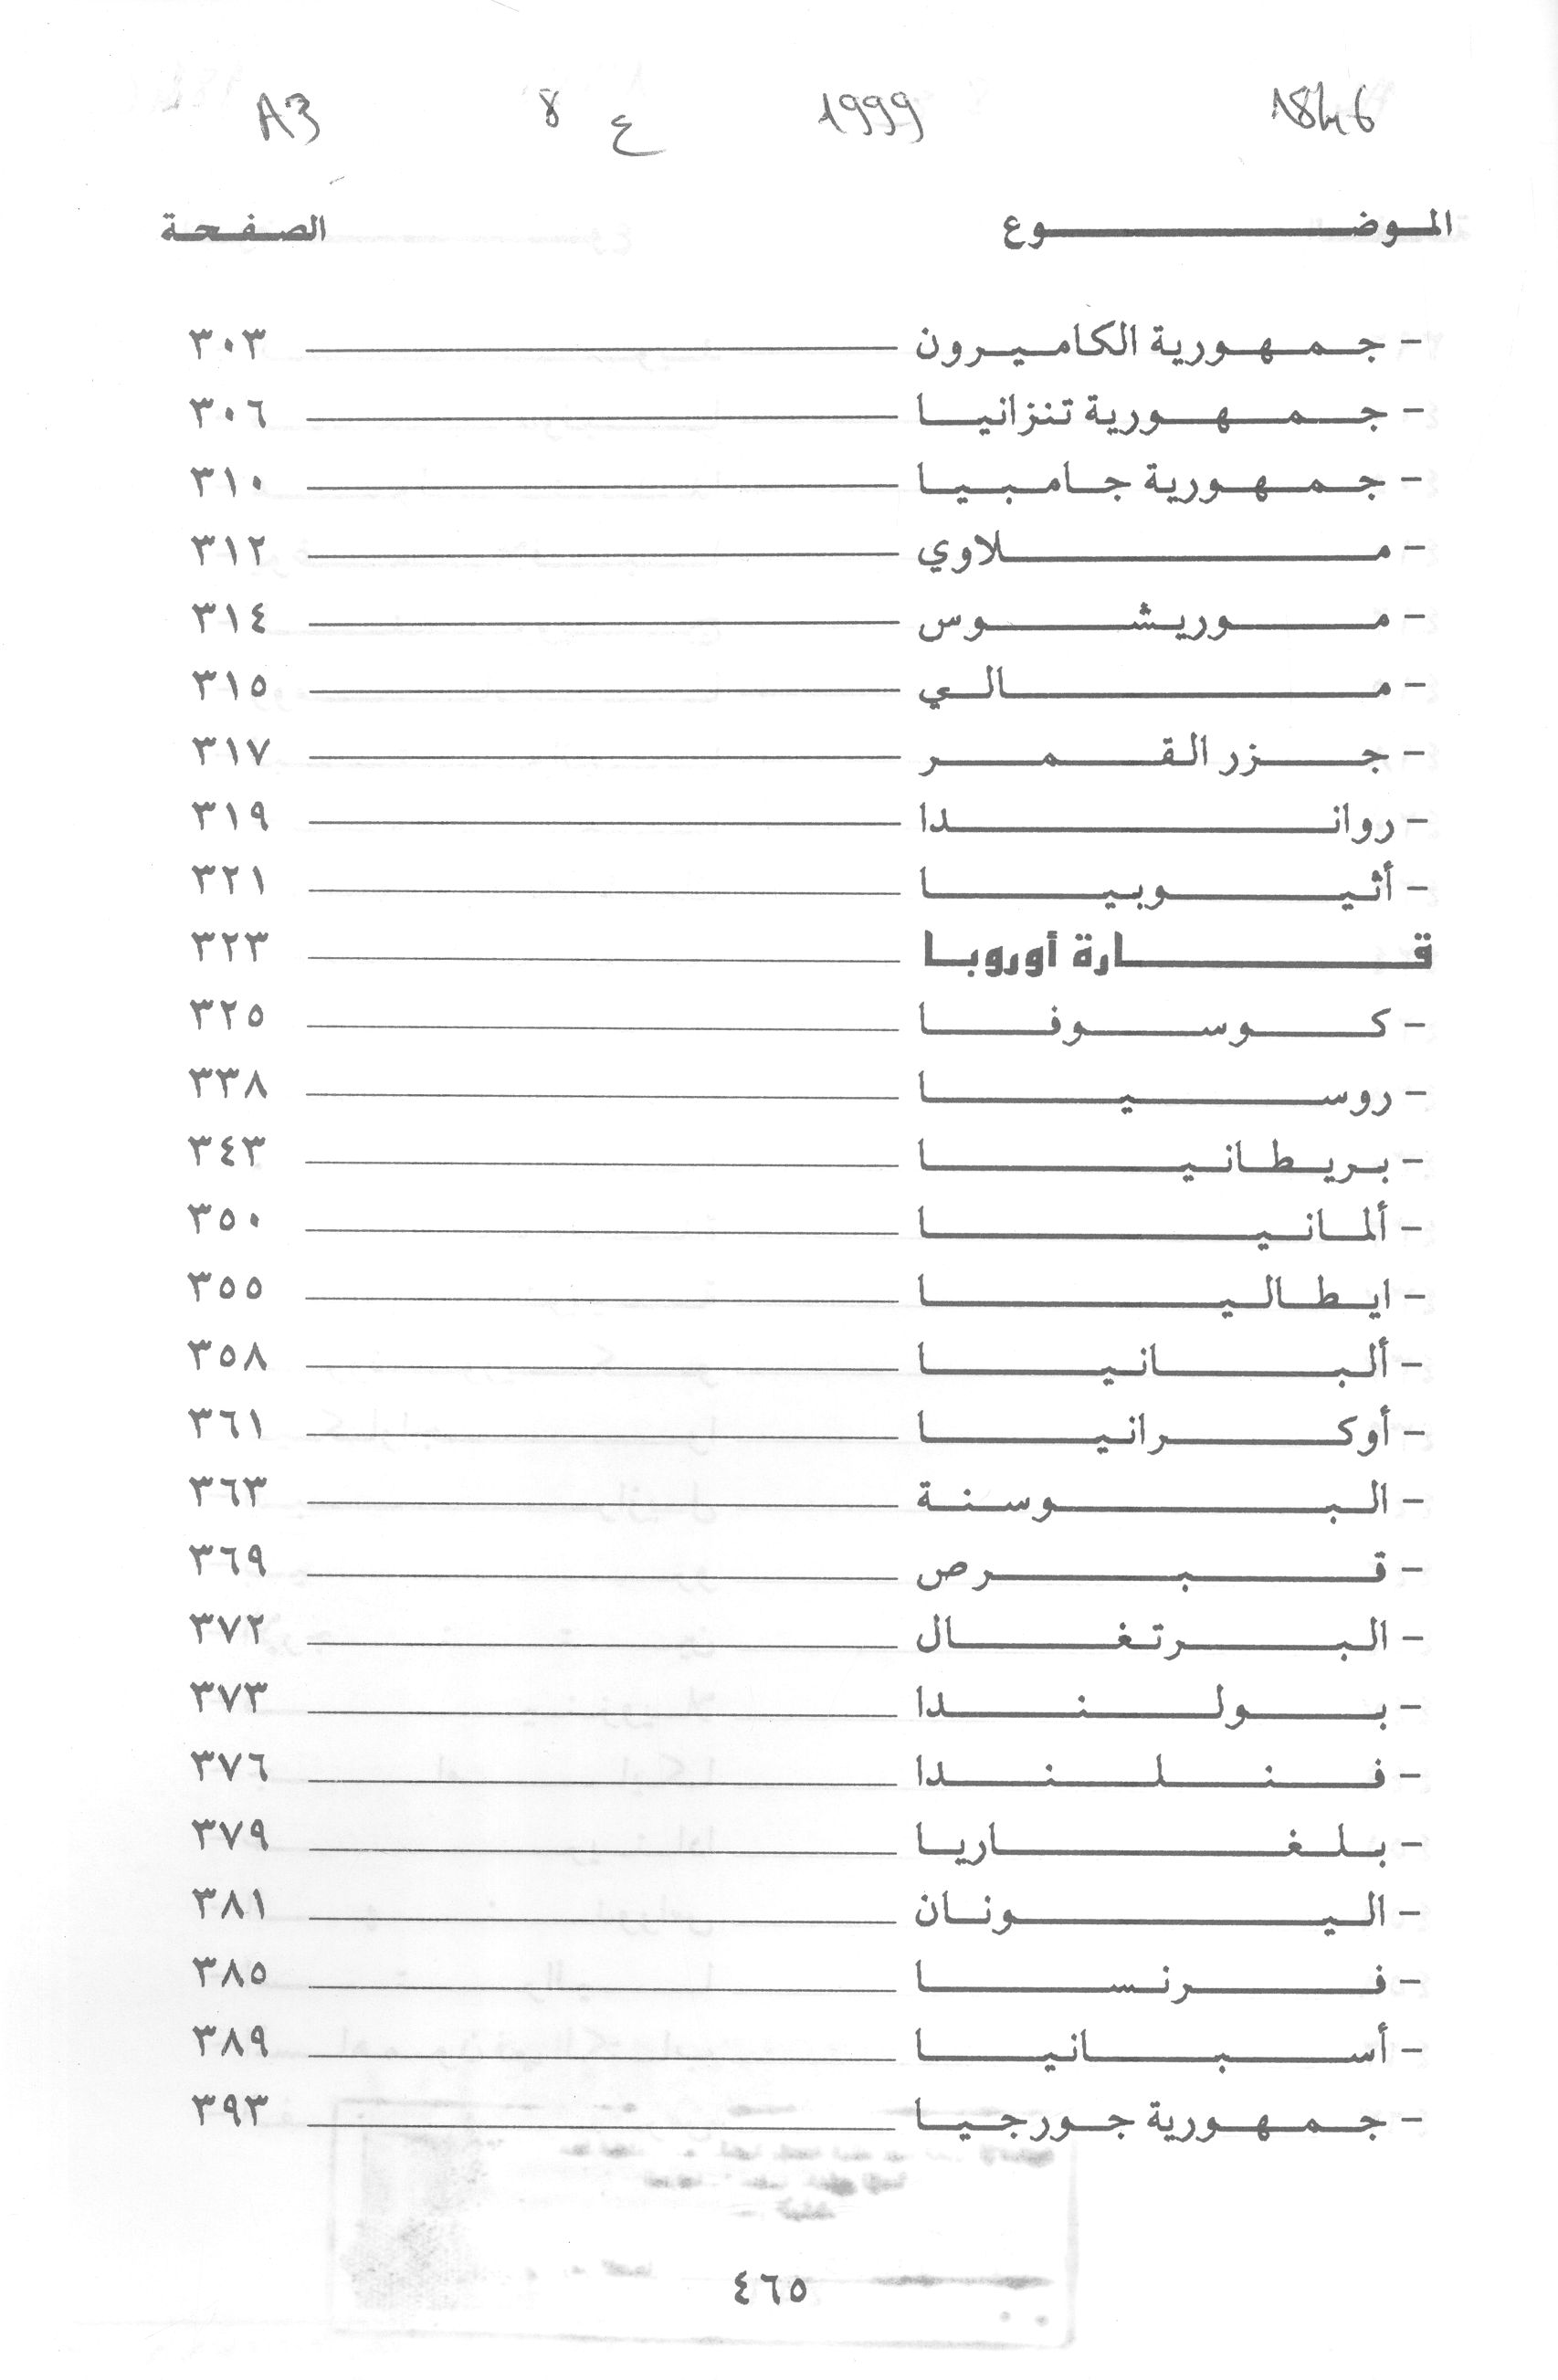 1846 1999 ع 8 A3
الموضوع الصفحة
- جمهورية الكاميرون ٣٠٣
- جمهورية تنزانيا ٣٠٦
- جمهورية جامبيا ٣١٠
- ملاوي ٣١٢
- موريشوس ٣١٤
- مالي ٣١٥
- جزر القمر ٣١٧
- رواندا ٣١٩
- أثيوبيا ٣٢١
قارة أوروبا ٣٢٣
- كوسوفا ٣٢٥
- روسيا ٣٣٨
- بريطانيا ٣٤٣
- ألمانيا ٣٥٠
- ايطاليا ٣٥٥
- ألبانيا ٣٥٨
- أوكرانيا ٣٦١
- البوسنة ٣٦٣
- قبرص ٣٦٩
- البرتغال ٣٧٢
- بولندا ٣٧٣
- فنلندا ٣٧٦
- بلغاريا ٣٧٩
- اليونان ٣٨١
- فرنسا ٣٨٥
- أسبانيا ٣٨٩
- جمهورية جورجيا ٣٩٣
٤٦٥